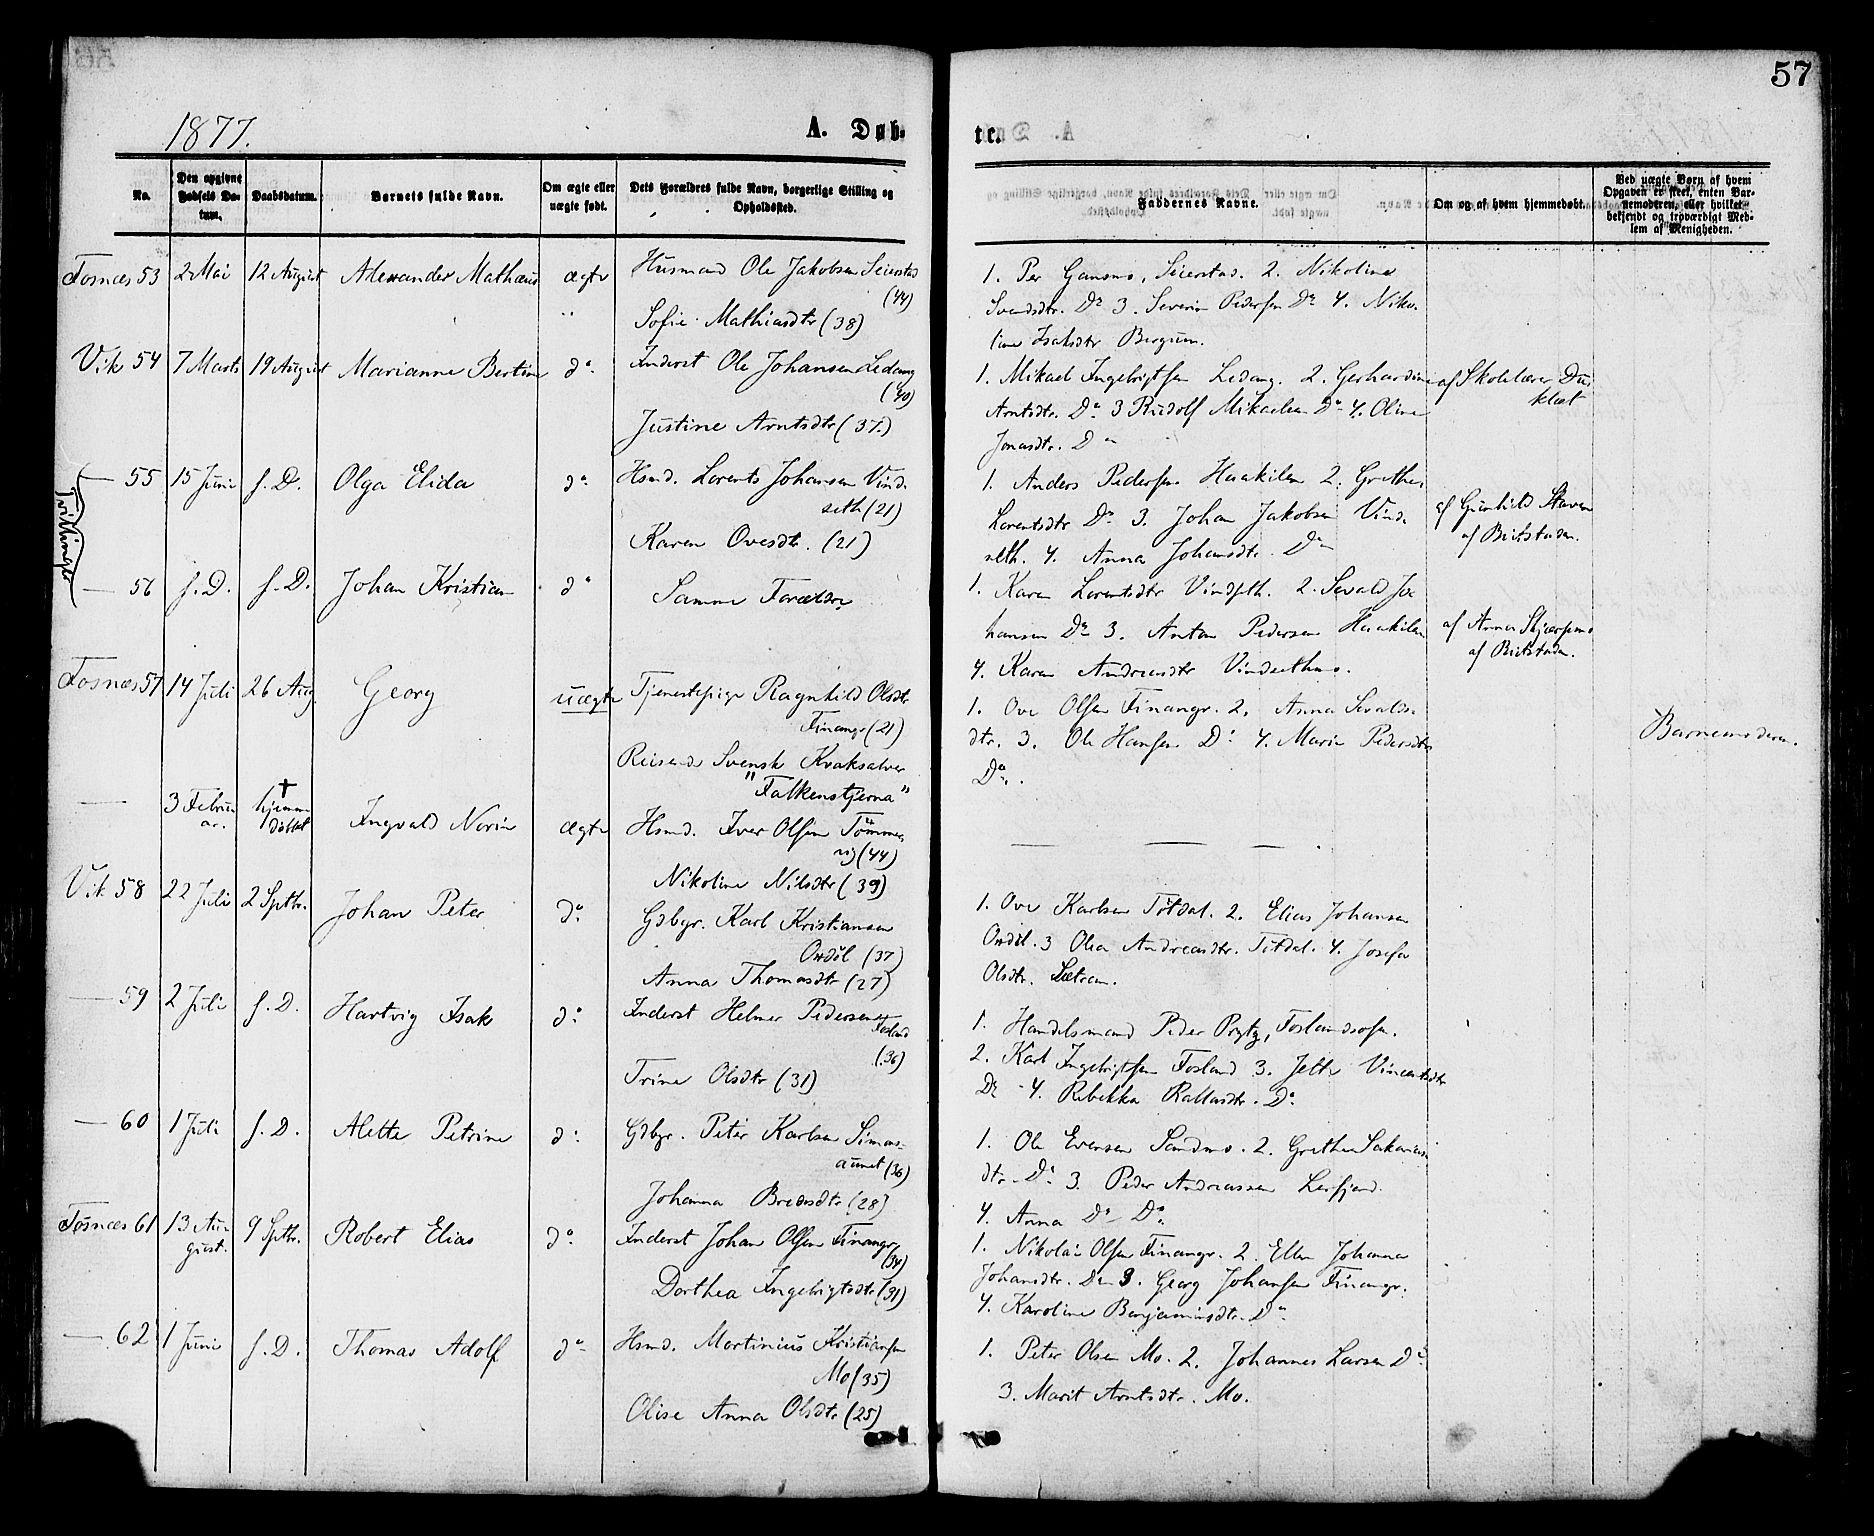 57
1877.
A. Døb-
te.
No.
Den opgivne Fødsels Datum.
Daabsdatum.
Barnets fulde Navn.
Om ægte eller uægte født.
Dets Forældres fulde Navn, borgerlige Stilling og Opholdssted.
Faddernes Navne.
Om og af hvem hjemmedøbt.
Ved uægte Børn af hvem Opgaven er skeet, enten Barnemoderen, eller hvilket bekjendt og troværdigt Medlem af Menigheden.
Fosnæs 53 2 Mai 12 August Alexander Mathæus ægte Husmand Ole Jakobsen Seierstad
(44)
Sofie Mathiasdtr (38)
1. Per Gansmo, Seierstad. 2. Nikoline
Svendsdtr. Do 3. Severin Pedersen Do 4. Niko-
line Isaksdtr Bergum.
Vik 54 7 Marts 19 August Marianne Bertine do. Inderst Ole Johansen Ledang
(40)
Justine Arntsdtr (37.)
1. Mikael Ingebrigtsen Ledang. 2. Gerhardine
Arntsdtr. Do 3 Rudolf Mikaelsen Do 4. Oline
Jonasdtr. Do
af Skolelærer Dun
klæt
Tvillinger
— 55 15 Juni s. D. Olga Elida do. Hsmd. Lorents Johansen Vind-
seth (21)
Karen Ovesdtr. (21)
1. Anders Pedersen Haakilen 2. Grethe
Lorentsdtr Do 3. Johan Jakobsen Vind-
seth. 4. Anna Johansdtr. Do
af Gunhild Staven
af Beitstaden.
— 56 s. D. s. D. Johan Kristian do Samme Forældre
1. Karen Lorentsdtr Vindseth. 2. Sevald Jo
hansen Do 3. Anton Pedersen Haakilen
4. Karen Andreasdtr Vindsethmo.
af Anna Skjærpmo
af Beitstaden.
Fosnæs 57 14 Juli 26 Aug. Georg uægte Tjenestepige Ragnhild Olsdtr
Finangr (21)
Reisende Svensk Kvaksalver
"Falkenstjerna"
1. Ove Olsen Finangr. 2. Anna Sevalds-
dtr. 3. Ole Hansen Do 4. Marie Pedersdtr
Do.
Barnemoderen.
— 3 Februar. † hjemmedøbt Ingvald Norin ægte Hsmd. Iver Olsen Tømmer
vig (44)
Nikoline Nilsdtr (39)
Vik 58 22 Juli 2 Sptbr. Johan Peter do. Gdbgr. Karl Kristiansen
Ordøl (37)
Anna Thomasdtr (27)
1. Ove Karlsen Tøtdal. 2. Elias Johansen
Ordøl. 3 Olea Andreasdtr. Tøtdal. 4. Josefa
Olsdtr. Sætran.
— 59 2 Juli s. D. Hartvig Isak do. Inderst Helmer Pedersen Fosland
(36)
Trine Olsdtr (31)
1. Handelsmand Peder Prytz, Foslandsosen.
2. Karl Ingebrigtsen Fosland 3. Jette Vincentsdtr
Do 4. Rebekka Rallasdtr. Do.
— 60 1 Juli s. D. Alette Petrine do. Gdbgr. Peter Karlsen Simons-
aunet (36)
Johanna Breansdtr (28)
1. Ole Evensen Sandmo. 2. Grethe Sakarias
dtr. Do 3. Peder Andreassen Lerfjend.
4. Anna Do Do.
Fosnæs 61 13 August. 9 Sptbr. Robert Elias do. Inderst Johan Olsen Finangr
(34)
Dorthea Ingebrigtsdtr (31)
1. Nikolai Olsen Finangr. 2. Ellen Johanna
Johansdtr. Do 3. Georg Johansen Finangr.
4. Karoline Benjaminsdtr. Do
— 62 1 Juni s. D. Thomas Adolf do Hsmd. Martinius Kristiansen
Mo (35)
Olise Anna Olsdtr (25)
1. Peter Olsen Mo. 2. Johannes Larsen Do
3. Marit Arntsdtr. Mo.